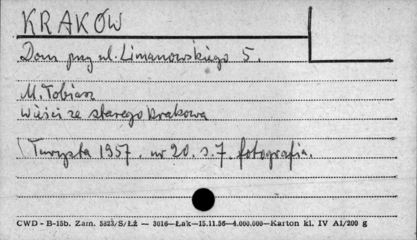 KRAKÓW
Dom przy ul. Limanowskiego 5.
M. Tobiasz
Wieści ze starego Krakowa
Turysta 1957. nr 20. s. 7. fotografia.
CWD - B-15b. Zam. 5823/S/Łż — 3016—Łak—15.11.56—4.000.000—Karton kl. IV A1/200 g